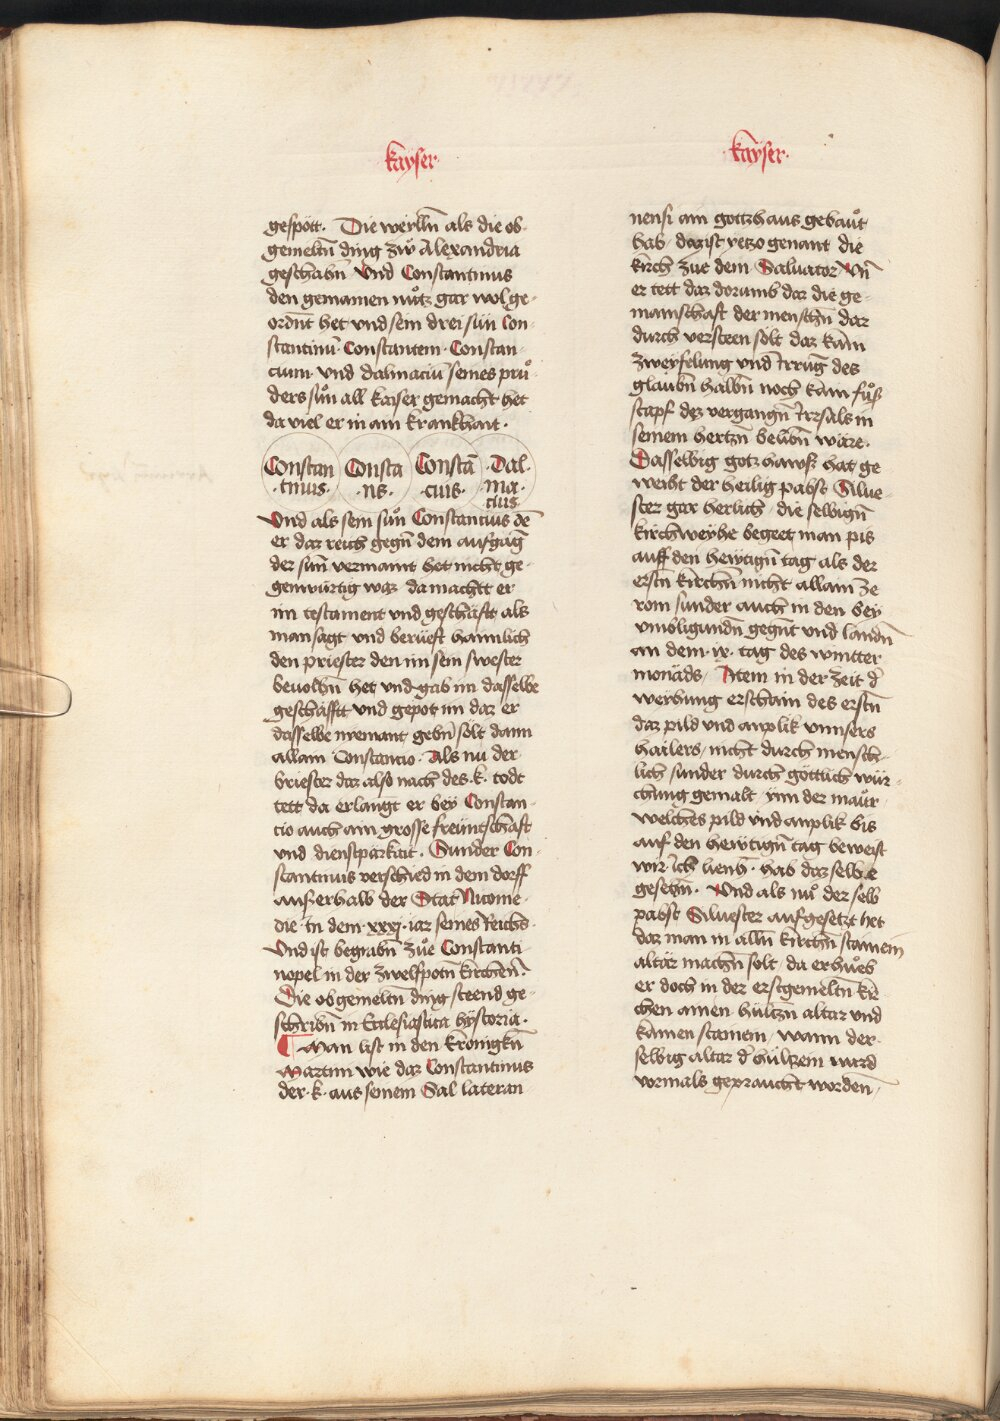 kayser.
gespött. Die weylln̄ als die ob
gemeltn̄ ding zw̄ Alexandria
geschahn̄ Vnd Constantinus
den gemainen nütz gar wol ge-
ordnt het vnd sein drei sün Con-
stantinū Constantem Constan-
cium vnd dalmaciū seines prů
ders sün all kaiser gemacht het
da viel er in ain kranckhait.
Constan
tinus.
Consta
.ns.
Constā
.cius.
.Dal.
.ma.
cius.
Vnd als sein sün Constancius dē
er daz reich gegn̄ dem aufgāg
der sun̄ vermaint het nicht ge-
genwürtig waz da machtt er
im testament vnd geschäfft als
man sagt vnd berüeft haimlich
den priester den im sein swester
beuolhn̄ het vnd gab im dasselbe
geschäfftt vnd gepot im daz er
dasselbe nyemant gebn̄ sölt dann
allain Constancio. Als nu der
briester daz also nach des .k. todt
tett da erlangt er bey Constan-
cio auch ain grosse freüntschafft
vnd dienstparkait. Sunder Con-
stantinus verschied in dem dorff
ausserhalb der Stat Nicome-
die in dem .xxxj. iar seines Reichs.
Vnd ist begrabn̄ zůe Constanti-
nopel in der zwelfpotn̄ kirchen.
Die obgemeltn̄ ding steend ge-
schribn̄ in Ecclesiastica hystoria.
Man list in den kronigkn̄
Martini wie daz Constantinus
der .k. aus seinem Sal lateran
kayser.
nensi ain gottzhaus gebaůt
hab / daz ist yetzo genant die
kirch zue dem Saluator Vn̄
er tett daz dorumb daz die ge-
mainschaft der menschn̄ daz
durch versteen sölt daz kain
zweyfelung vnd Irrūg des
glaubn̄ halbn̄ noch kain fůsz
stapf dez vergangn̄ Irrsals in
seinem hertzn̄ belibn̄ wäre.
Dasselbig gotzhawsz hat ge
weiht der heilig pabst Silue-
ster gar herlich / die selbign̄
kirchweyhe begeet man pis
auff den hewtign̄ tag als der
erstn̄ kirchn̄ nicht allain ze
rom sunder auch in den bey
vmbligundn̄ gegnt vnd landn̄
an dem .ix. tag des wintter
monäds / Item in der zeit d̄
weyhung erschain des erstn̄
daz pild vnd anplik vnnsers
hailers / nicht durch mensch-
lich sunder durch göttlich wür-
chung gemalt / ynn der maůr /
welches pild vnd anplik bis
auf den hewtign̄ tag beweist
wir Ich lienh. hab daz selb e
gesehn̄. Vnd als nů der selb
pabst Siluester aufgesetzt het
daz man in alln̄ kirchn̄ stainein
altär machn̄ solt / da erhůeb
er doch in der erstgemeltn̄ kir
chen ainen hültzn̄ altar vnd
kainen stainein / wann der-
selbig altar d̄ hültzein ward
vormals geprauchtt worden /